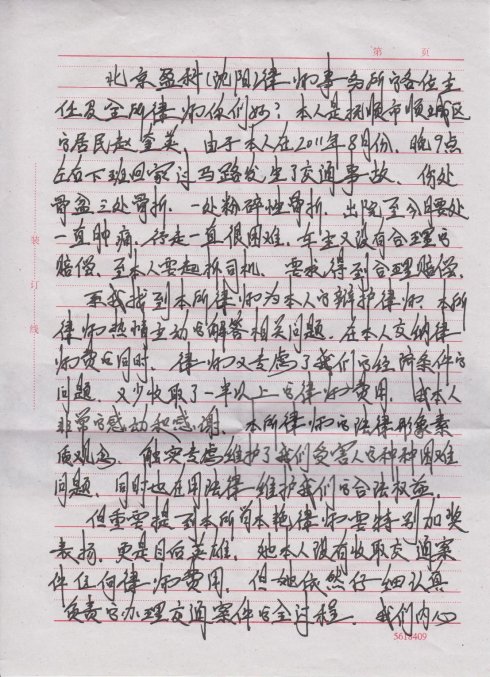 第 页
北京盈科(沈阳)律师事务所的各位主
任及全所律师你们好:本人是抚顺市顺城区
的居民赵金英。由于本人在2011年8月份,晚9点
左右下班回家过马路发生了交通事故。伤处
骨盆三处骨折,一处粉碎性骨折,出院至今腰处
一直肿痛,行走一直很困难,车主又没有合理的
赔偿。至本人要起诉司机,要求得到合理赔偿。
我找到本所律师为本人的辩护律师,本所
律师热情主动的解答相关问题,在本人交纳律
师费的同时,律师又考虑了我们的经济条件的
问题,又少收取了一半以上的律师费用,我本人
非常的感动和感谢。本所律师的法律形象素
质观高,能实考虑维护了我们受害人的种种困难
问题,同时也在用法律维护我们的合法权益。
但重要提到本所的艳律师要特别加奖
表扬,更是目后英雄,她本人没有收取交通案
件任何律师费用,但她依然仔细认真
负责的办理交通案件的全过程,我们内心
5618409
装
订
线